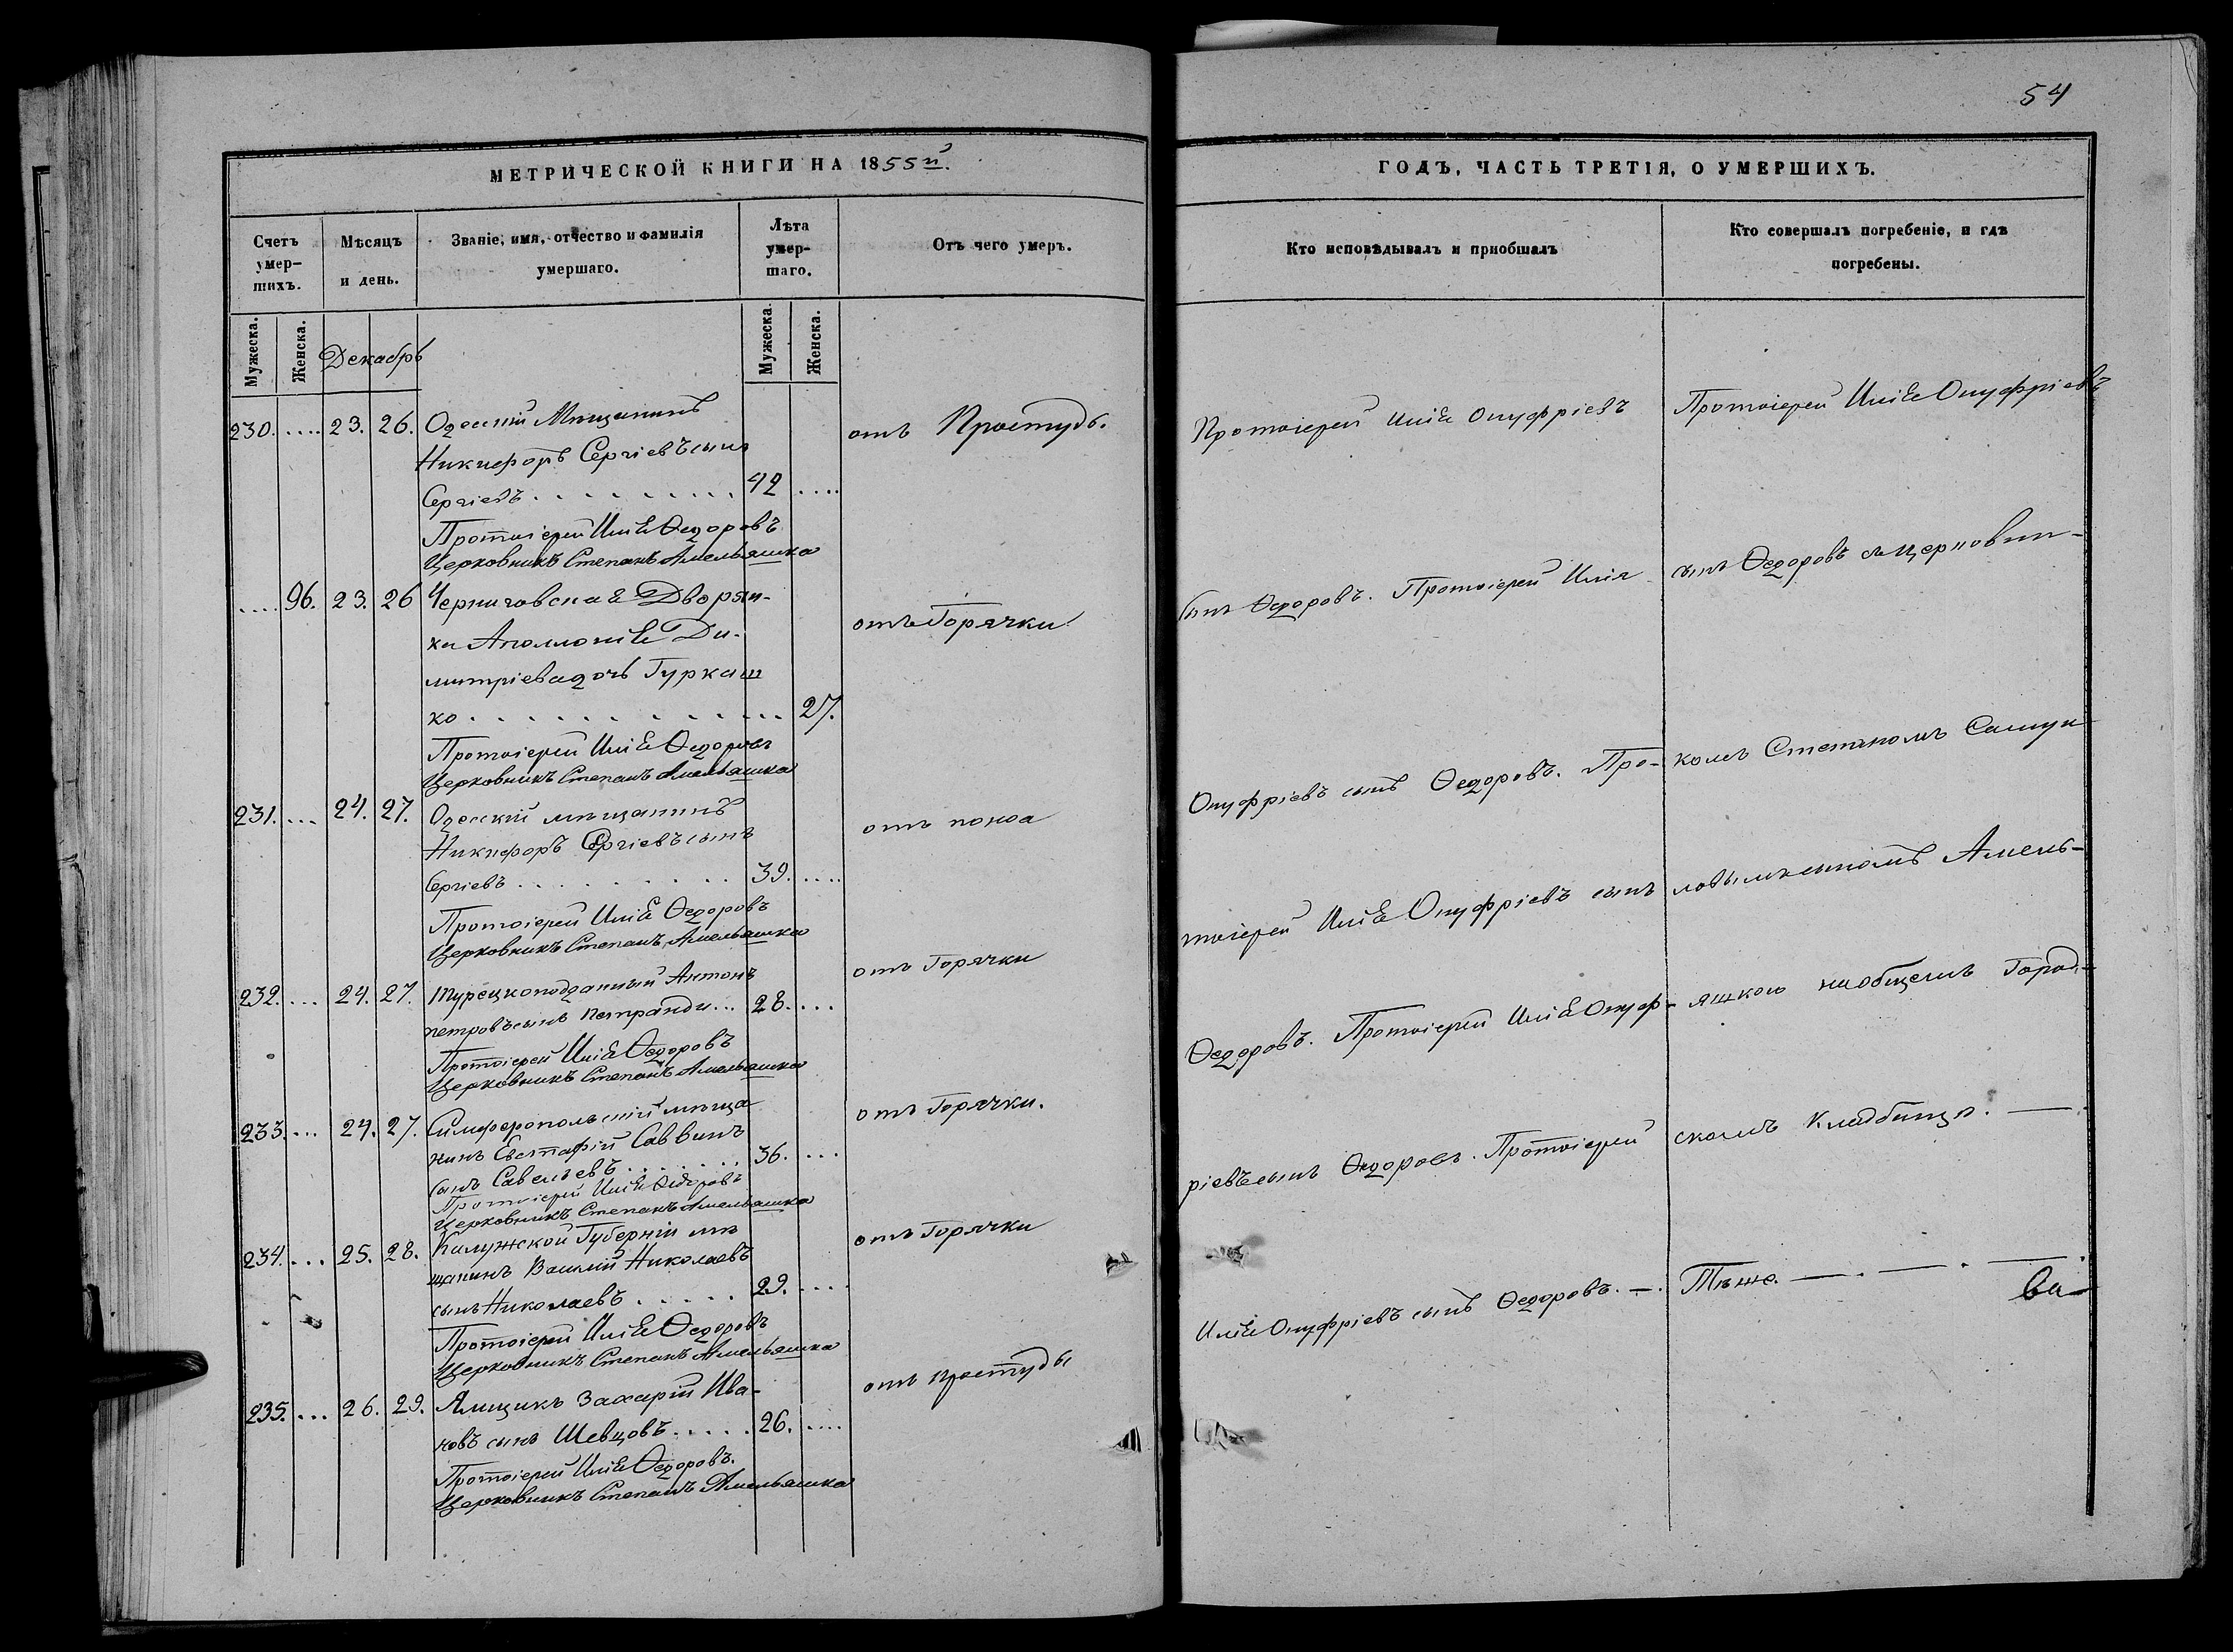 54
МЕТРИЧЕСКОЙ КНИГИ НА 1855й.
ГОДЪ, ЧАСТЬ ТРЕТІЯ, О УМЕРШИХЪ.
Счетъ умер-шихъ.
Мѣсяцъ и день.
Званіе, имя, отчество и фамилія умершаго.
Лѣта умер-шаго.
Отъ чего умеръ.
Кто исповѣдывалъ и приобщалъ
Кто совершалъ погребеніе, и гдѣ погребены.
Мужеска. Женска. Декабрь Мужеска. Женска.
230. .... 23. 26. Одесскій Мѣщанинъ
Никифоръ Сергіевъ сынъ
Сергіевъ . . . . . . . . . 42 ....
отъ Простуды.
Протоіерей Илія Ѳедоровъ
Церковникъ Степанъ Амельяшко
.... 96. 23. 26 Черниговская Дворян-
ка Аполлонія Ди-
митріева дочь Туркаш
ко . . . . . . . . . . . 27.
отъ Горячки
Протоіерей Илія Ѳедоровъ
Церковникъ Степанъ Амельяшко
231. ... 24. 27. Одесскій мѣщанинъ
Никифоръ Сергіевъ сынъ
Сергіевъ . . . . . . . . . 39. ....
отъ поноса
Протоіерей Илія Ѳедоровъ
Церковникъ Степанъ Амельяшко
232. ... 24. 27. Турецкоподданный Антонъ
Петровъ сынъ Петранди... 28. ....
отъ Горячки
Протоіерей Илія Ѳедоровъ
Церковникъ Степанъ Амельяшко
233. ... 24. 27. Симферопольскій мѣща
нинъ Евстафій Саввинъ
сынъ Савельевъ . . . . . . 36. ...
отъ Горячки.
Протоіерей Илія Ѳедоровъ
Церковникъ Степанъ Амельяшко
234. ... 25. 28. Калужской Губерніи мѣ
щанинъ Василій Николаевъ
сынъ Николаевъ . . . . . 29. ....
отъ Горячки
Протоіерей Илія Ѳедоровъ
Церковникъ Степанъ Амельяшко
235. ... 26. 29. Ямщикъ Захарій Ива-
новъ сынъ Шевцовъ . . . . . 26. ....
отъ простуды
Протоіерей Илія Ѳедоровъ.
Церковникъ Степанъ Амельяшко
Протоіерей Илія Онуфріевъ
сынъ Ѳедоровъ. Протоіерей Илія
Онуфріевъ сынъ Ѳедоровъ. Про-
тоіерей Илія Онуфріевъ сынъ
Ѳедоровъ. Протоіерей Илія Онуф-
ріевъ сынъ Ѳедоровъ. Протоіерей
Илія Онуфріевъ сынъ Ѳедоровъ. —.
Протоіерей Илія Онуфріевъ
сынъ Ѳедоровъ съ церковни-
комъ Степаномъ Самуи
ловымъ сыномъ Амель-
яшкою на общемъ Город-
скомъ Кладбищѣ. —.
Тѣже. — . — . — .